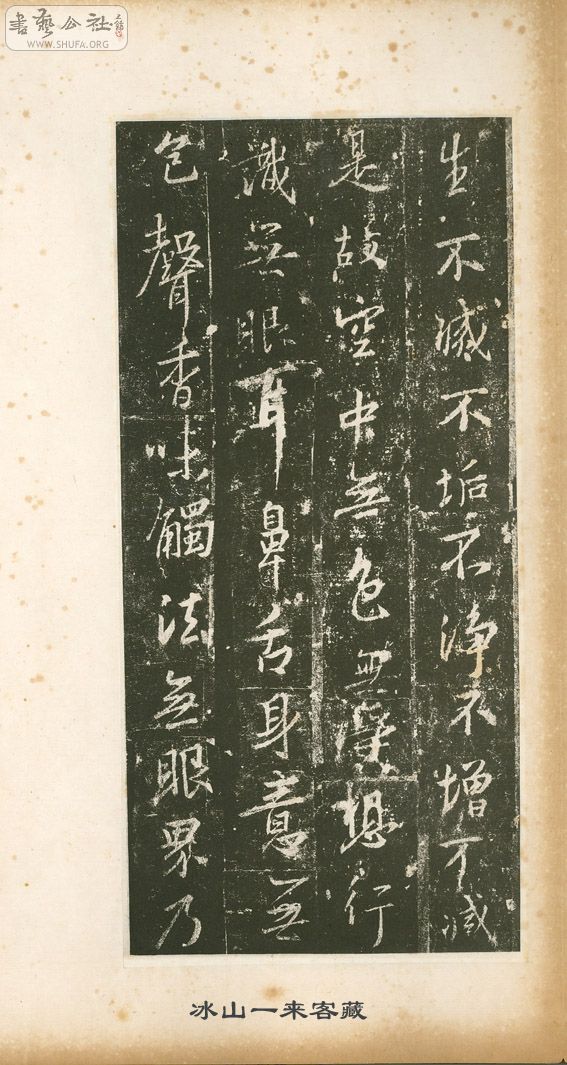 書藝公社
WWW.SHUFA.ORG
生不滅不垢不淨不增不減
是故空中無色無受想行
識無眼耳鼻舌身意無
色聲香味觸法無眼界乃
冰山一来客藏